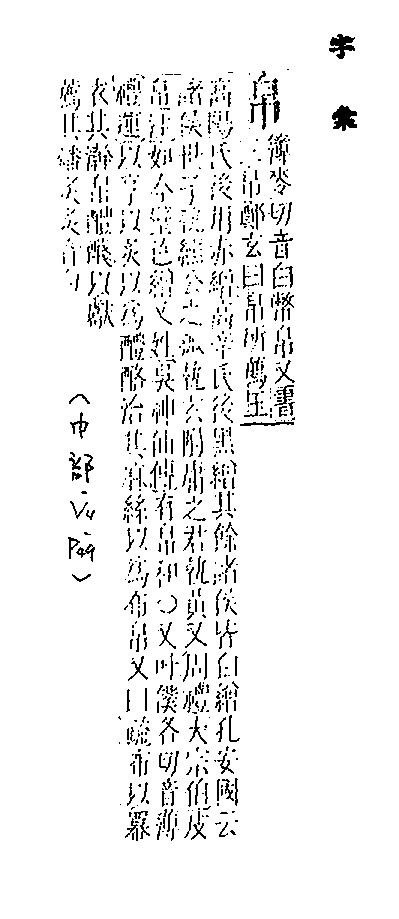 字彙
帛
簿麥切音白幣帛又書
三帛鄭玄曰帛所薦玉
高陽氏後用赤繒高辛氏後黑繒其餘諸侯皆白繒孔安國云
諸侯世子執纁公之孤執玄附庸之君執黃又周禮大宗伯皮
帛注如今璧色繒又姓吳神仙傳有帛和○又叶僕各切音薄
禮運以亨以炙以為醴酪治其麻絲以為布帛又曰疏布以冪
衣其澣帛醴醆以獻
薦其燔炙炙音
(巾部-V4-P49)